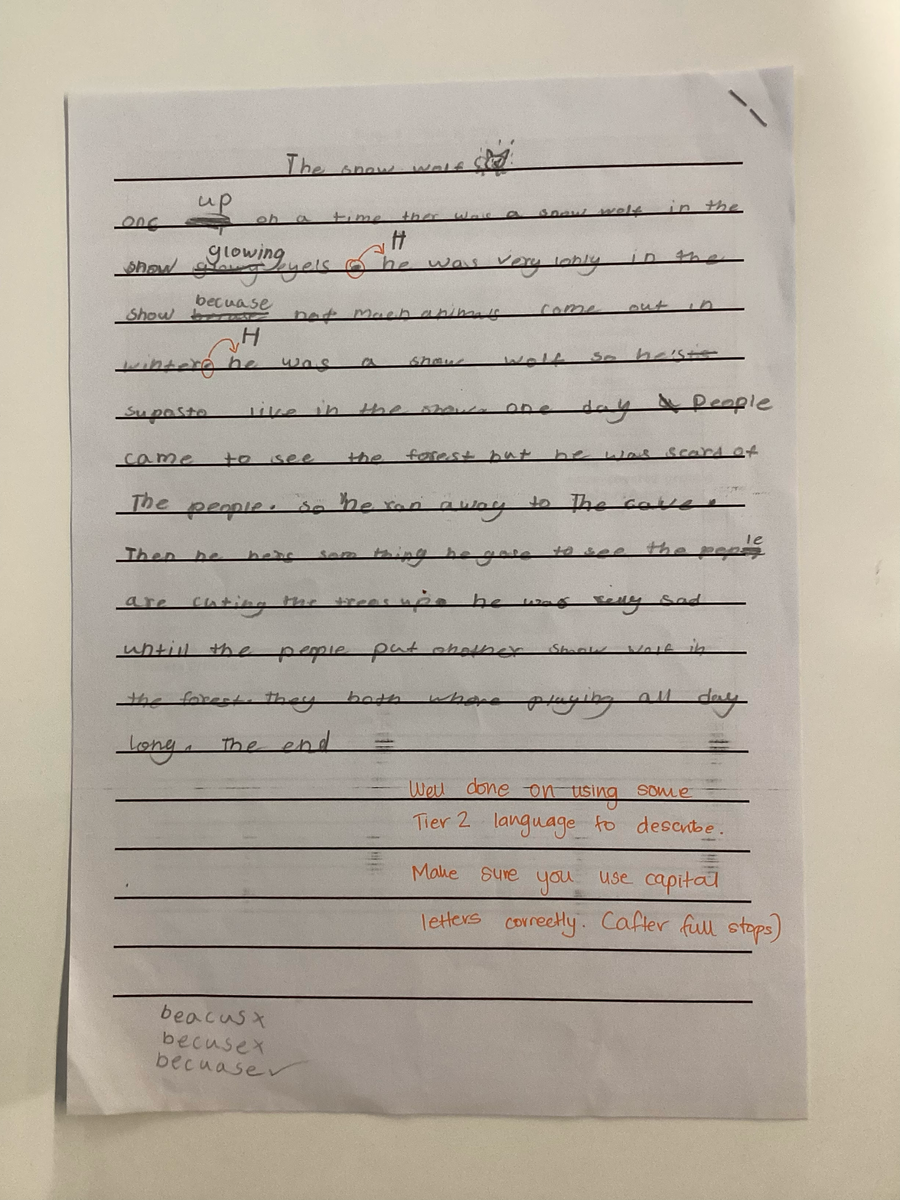 The snow wolf
one up on a time ther was a snow wolf in the
snow glowing eyels. H he was very lonly in the
snow becuase not much animals come out in
winter. H he was a snow wolf so he's
suposto live in the snow. one day People
came to see the forest but he was scard of
The people. so he ran away to The cave.
Then he hers som thing he gose to see the people
are cuting the trees up. he was relly sad
untill the people put another snow wolf in
the forest. they both where playing all day
long. The end
Well done on using some
Tier 2 language to describe.
Make sure you use capital
letters correctly. (after full stops)
beacus x
becuse x
becuase ✓